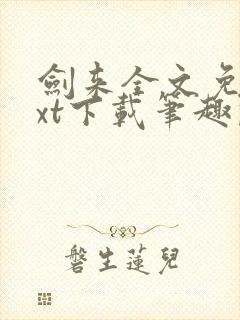 劍来全文免
xt下載筆趣
磐生蓮兒